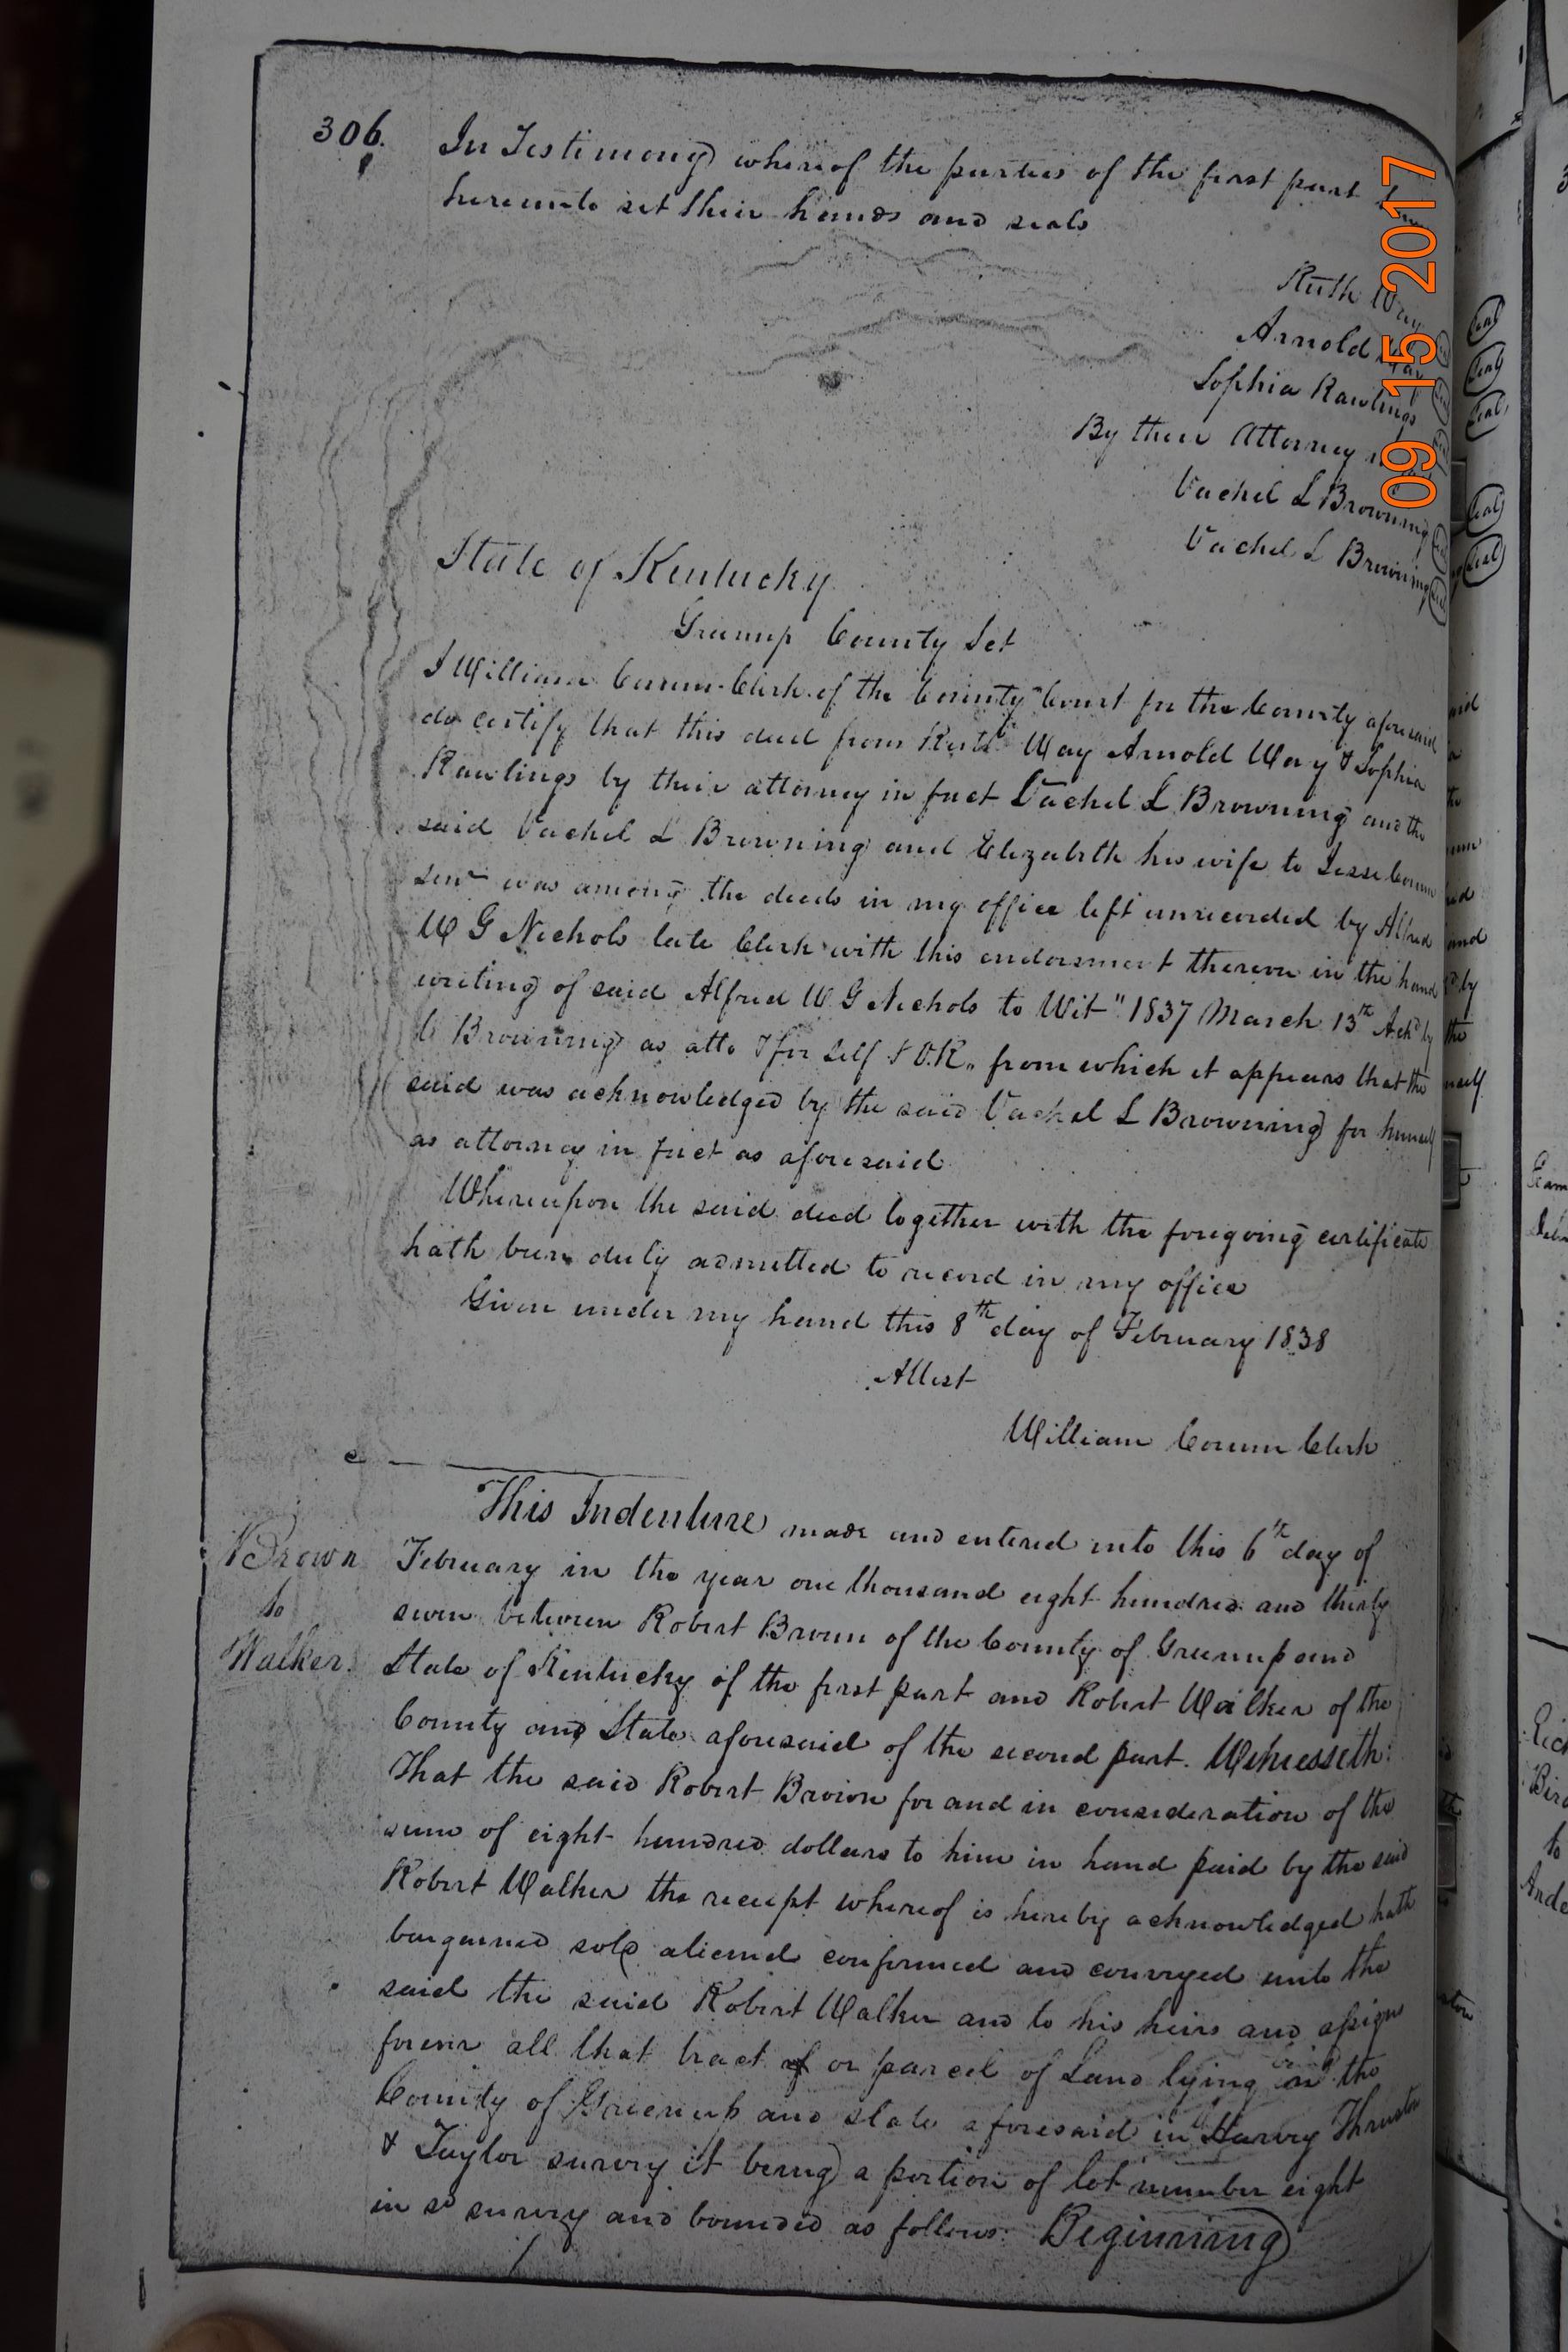 306.
In Testimony whereof the parties of the first part
hereunto set their hands and seals
Ruth Way
Arnold Way
Sophia Rawlings
By their Attorney
Vachel L Browning
Vachel L Browning
State of Kentucky
Greenup County Sct
I William Corum Clerk of the County Court for the County aforesaid
do certify that this deed from Ruth Way Arnold Way & Sophia
Rawlings by their attorney in fact Vachel L Browning and the
said Vachel L Browning and Elizabeth his wife to Jesse Corum
Senr was among the deeds in my office left unrecorded by Alfred
W G Nichols late Clerk with this endorsment thereon in the hand
writing of said Alfred W G Nichols to Wit " 1837 March 13th Ackd by
Browning as atto & for self & O.K. from which it appears that the
said was acknowledged by the said Vachel L Browning for himself
as attorney in fact as aforesaid
Whereupon the said deed together with the foregoing certificate
hath been duly admitted to record in my office
Given under my hand this 8th day of February 1838
Attest
William Corum Clerk
Brown
to
Walker
This Indenture made and entered into this 6th day of
February in the year one thousand eight hundred and thirty
seven between Robert Brown of the County of Greenup and
State of Kentucky of the first part and Robert Walker of the
County and State aforesaid of the second part. Witnesseth:
That the said Robert Brown for and in consideration of the
sum of eight hundred dollars to him in hand paid by the said
Robert Walker the receipt whereof is hereby acknowledged hath
bargained sold aliened confirmed and conveyed unto the
said the said Robert Walker and to his heirs and assigns
forever all that tract of or parcel of Land lying in the
County of Greenup and state aforesaid in Harvy Thruston
& Taylor survey it being a portion of lot number eight
in sd survey and bounded as follows. Beginning
09 15 2017